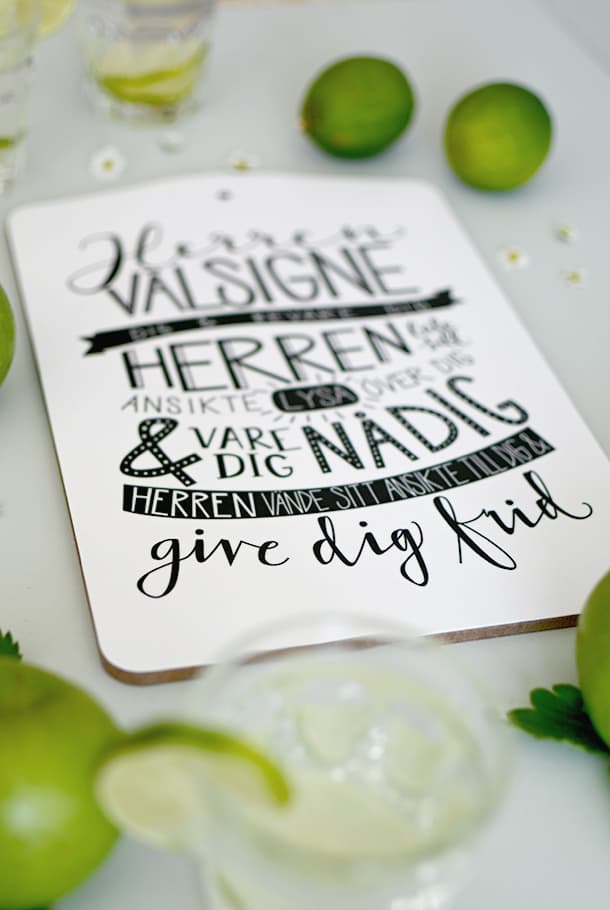 Herren
VÄLSIGNE
DIG & BEVARE DIG
HERREN låte sitt
ANSIKTE LYSA ÖVER DIG
& VARE DIG NÅDIG
HERREN VÄNDE SITT ANSIKTE TILL DIG &
give dig frid